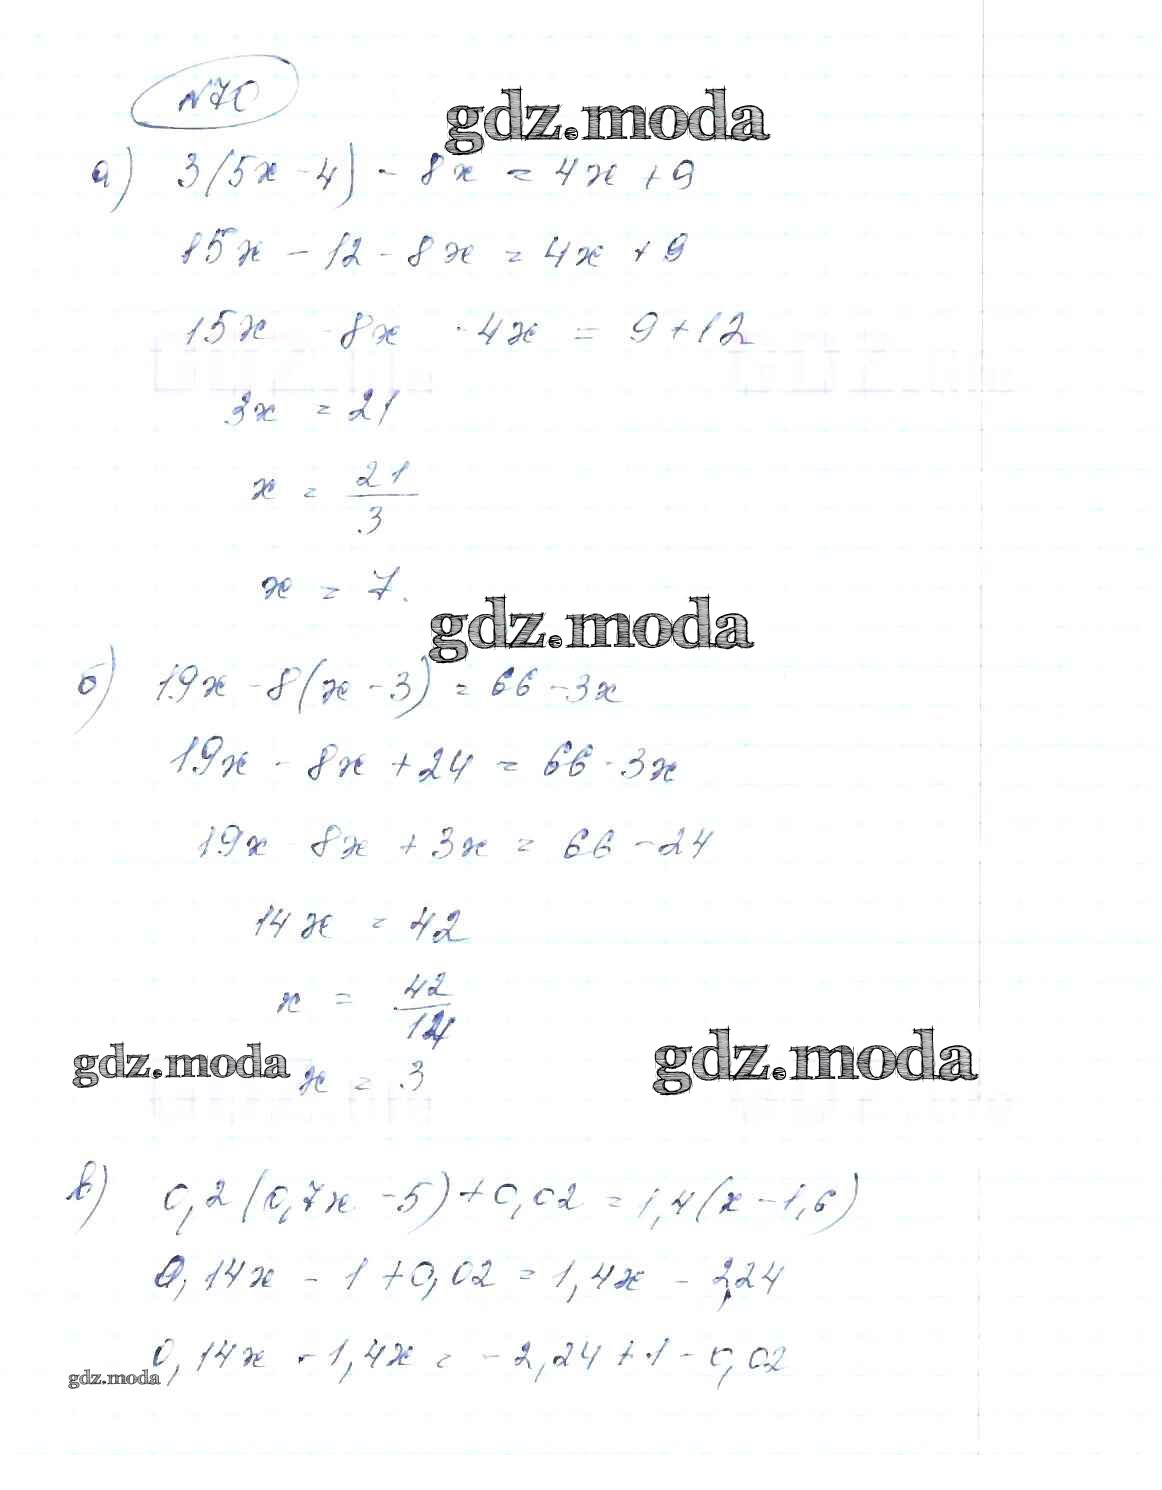 N70
gdz.moda
а) 3(5x - 4) - 8x = 4x + 9
15x - 12 - 8x = 4x + 9
15x - 8x - 4x = 9 + 12
3x = 21
x = 21/3
x = 7.
gdz.moda
б) 19x - 8(x - 3) = 66 - 3x
19x - 8x + 24 = 66 - 3x
19x - 8x + 3x = 66 - 24
14x = 42
x = 42/14
gdz.moda
gdz.moda
x = 3
в) 0,2(0,7x - 5) + 0,02 = 1,4(x - 1,6)
0,14x - 1 + 0,02 = 1,4x - 2,24
0,14x - 1,4x = -2,24 + 1 - 0,02
gdz.moda